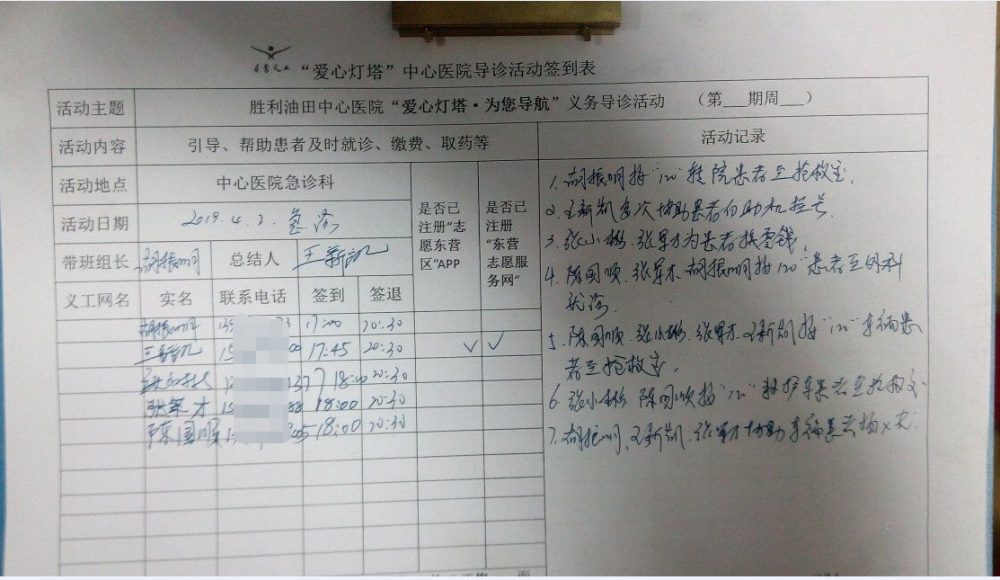 “爱心灯塔”中心医院导诊活动签到表
活动主题 胜利油田中心医院“爱心灯塔·为您导航”义务导诊活动 (第___期周___)
活动内容 引导、帮助患者及时就诊、缴费、取药等
活动地点 中心医院急诊科
活动日期 2019.4.2. 急诊
带班组长 胡振明 总结人 王新凯
是否已注册“志愿东营区”APP
是否已注册“东营志愿服务网”
义工网名 实名 联系电话 签到 签退
胡振明 17:00 20:30
王新凯 17:45 20:30 √ √
张小彬 18:00 20:30
张军才 18:00 20:30
陈国顺 18:00 20:30
活动记录
1. 胡振明接“120”转院患者至抢救室.
2. 王新凯多次协助患者自助机挂号.
3. 张小彬、张军才为患者换零钱.
4. 陈国顺、张军才、胡振明接“120”患者至外科
就诊.
5. 陈国顺、张小彬、张军才、王新凯接“120”车祸患
者至抢救室.
6. 张小彬 陈国顺接“120”救护车患者至抢救室
7. 胡振明、王新凯、张军才协助车祸患者拍X光.